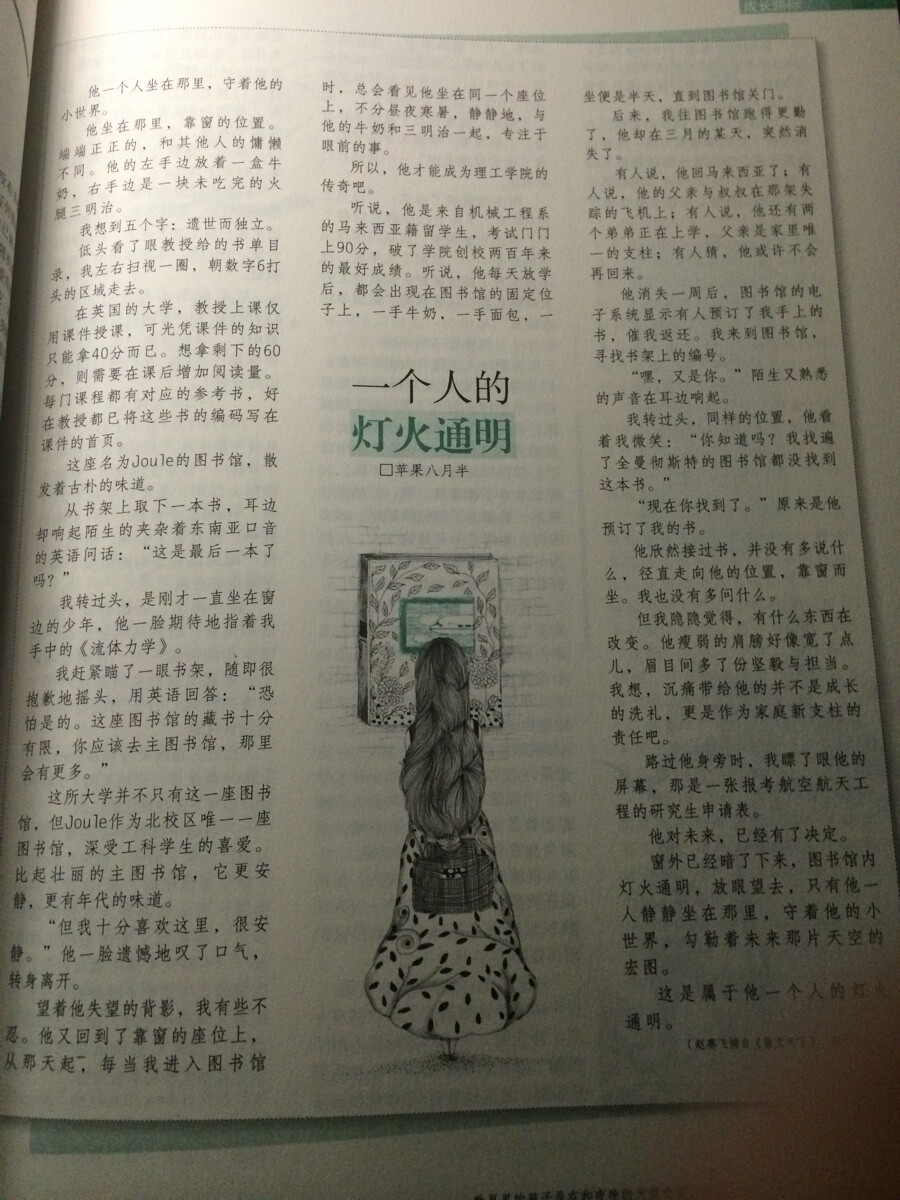 成长路标
一个人的
灯火通明
□苹果八月半
他一个人坐在那里，守着他的
小世界。
他坐在那里，靠窗的位置。
端端正正的，和其他人的慵懒
不同。他的左手边放着一盒牛
奶，右手边是一块未吃完的火
腿三明治。
我想到五个字：遗世而独立。
低头看了眼教授给的书单目
录，我左右扫视一圈，朝数字6打
头的区域走去。
在英国的大学，教授上课仅
用课件授课，可光凭课件的知识
只能拿40分而已。想拿剩下的60
分，则需要在课后增加阅读量。
每门课程都有对应的参考书，好
在教授都已将这些书的编码写在
课件的首页。
这座名为Joule的图书馆，散
发着古朴的味道。
从书架上取下一本书，耳边
却响起陌生的夹杂着东南亚口音
的英语问话：“这是最后一本了
吗？”
我转过头，是刚才一直坐在窗
边的少年，他一脸期待地指着我
手中的《流体力学》。
我赶紧瞄了一眼书架，随即很
抱歉地摇头，用英语回答：“恐
怕是的。这座图书馆的藏书十分
有限，你应该去主图书馆，那里
会有更多。”
这所大学并不只有这一座图书
馆，但Joule作为北校区唯一一座
图书馆，深受工科学生的喜爱。
比起壮丽的主图书馆，它更安
静，更有年代的味道。
“但我十分喜欢这里，很安
静。”他一脸遗憾地叹了口气，
转身离开。
望着他失望的背影，我有些不
忍。他又回到了靠窗的座位上，
从那天起，每当我进入图书馆
时，总会看见他坐在同一个座位
上，不分昼夜寒暑，静静地，与
他的牛奶和三明治一起，专注于
眼前的事。
所以，他才能成为理工学院的
传奇吧。
听说，他是来自机械工程系
的马来西亚籍留学生，考试门门
上90分，破了学院创校两百年来
的最好成绩。听说，他每天放学
后，都会出现在图书馆的固定位
子上，一手牛奶，一手面包，一
坐便是半天，直到图书馆关门。
后来，我往图书馆跑得更勤
了，他却在三月的某天，突然消
失了。
有人说，他回马来西亚了；有
人说，他的父亲与叔叔在那架失
踪的飞机上；有人说，他还有两
个弟弟正在上学，父亲是家里唯
一的支柱；有人猜，他或许不会
再回来。
他消失一周后，图书馆的电
子系统显示有人预订了我手上的
书，催我返还。我来到图书馆，
寻找书架上的编号。
“嘿，又是你。”陌生又熟悉
的声音在耳边响起。
我转过头，同样的位置，他看
着我微笑：“你知道吗？我找遍
了全曼彻斯特的图书馆都没找到
这本书。”
“现在你找到了。”原来是他
预订了我的书。
他欣然接过书，并没有多说什
么，径直走向他的位置，靠窗而
坐。我也没有多问什么。
但我隐隐觉得，有什么东西在
改变。他瘦弱的肩膀好像宽了点
儿，眉目间多了份坚毅与担当。
我想，沉痛带给他的并不是成长
的洗礼，更是作为家庭新支柱的
责任吧。
路过他身旁时，我瞟了眼他的
屏幕，那是一张报考航空航天工
程的研究生申请表。
他对未来，已经有了决定。
窗外已经暗了下来，图书馆内
灯火通明，放眼望去，只有他一
人静静坐在那里，守着他的小
世界，勾勒着未来那片天空的
宏图。
这是属于他一个人的灯火
通明。